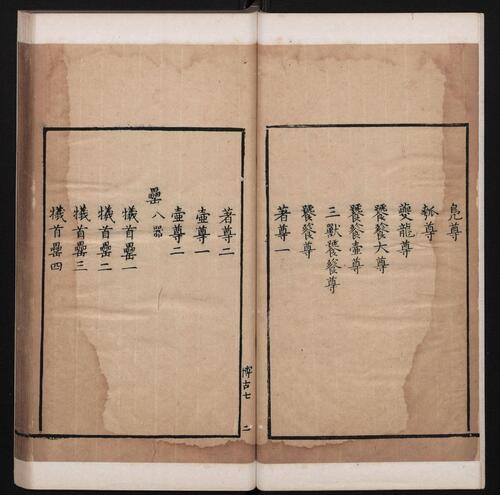 鳧尊
瓠尊
夔龍尊
饕餮大尊
饕餮壷尊
三獸饕餮尊
饕餮尊
著尊一
著尊二
壷尊一
壷尊二
罍八器
犧首罍一
犧首罍二
犧首罍三
犧首罍四
博古七 二